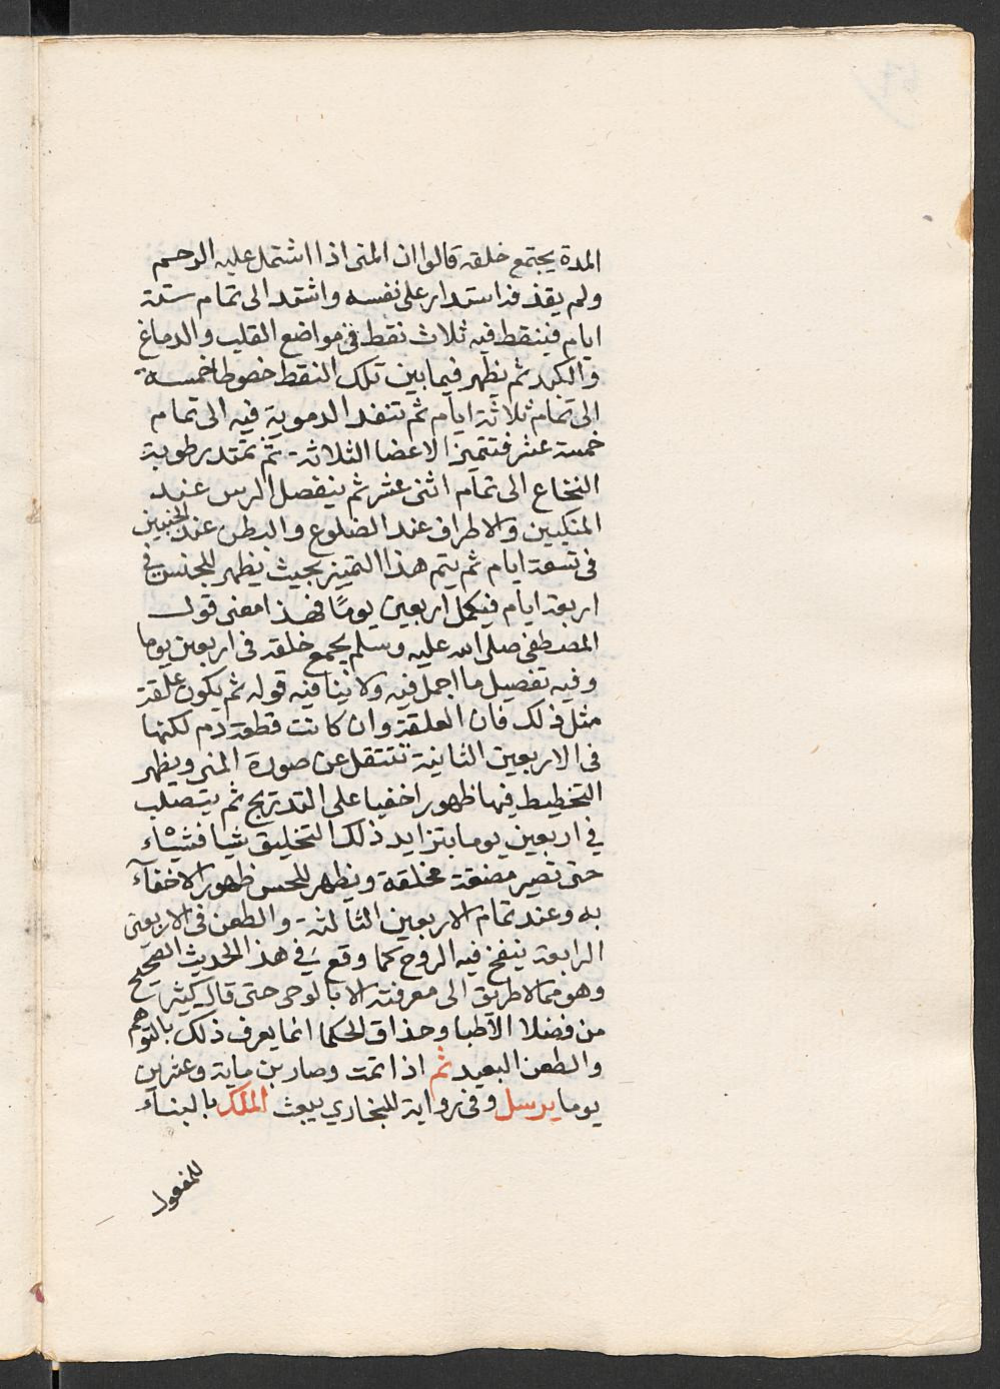 المدة يجتمع خلقه قالوا ان المنى اذا اشتمل عليه الرحم
ولم يقذفه استدار على نفسه واشتد الى تمام ستة
ايام فينقط فيه ثلاث نقط فى مواضع القلب والدماغ
والكبد ثم يظهر فيما بين تلك النقط خطوطا خمسة
الى تمام ثلاثة ايام ثم تنفد الدموية فيه الى تمام
خمسة عشر فتتميز الاعضا الثلاثة ثم تمتد رطوبة
النخاع الى تمام اثنى عشر ثم ينفصل الرس عند
المنكبين والاطراف عند الضلوع والبطن عند الجنبين
فى تسعة ايام ثم يتم هذا التميز بحيث يظهر للجنس فى
اربعة ايام فيكمل اربعين يوما فهذا معنى قول
المصطفى صلى الله عليه وسلم يجمع خلقه فى اربعين يوما
وفيه تفصيل ما اجمل فيه ولا ينافيه قوله ثم يكون علقة
مثل ذلك فان العلقة وان كانت قطعة دم لكنها
فى الاربعين الثانية تنتقل عن صورة المنى ويظهر
التخطيط فيها ظهورا خفيا على التدريج ثم يتصلب
في اربعين يوما بتزايد ذلك التخليق شيا فشيئاء
حتى تصير مضغة مخلقة ويظهر للحس ظهورا لا خفآء
به وعند تمام الاربعين الثالثة والطعن فى الاربعين
الرابعة ينفخ فيه الروح كما وقع في هذا الحديث الصحيح
وهو مما لا طريق الى معرفته الا بالوحى حتى قال كثير
من فضلا الاطبا وحذاق الحكما انما يعرف ذلك بالتوهم
والطعن البعيد ثم اذا تمت وصار بن ماية وعشرين
يوما يرسل وفى رواية للبخاري يبعث الملك بالبناء
للمفعول